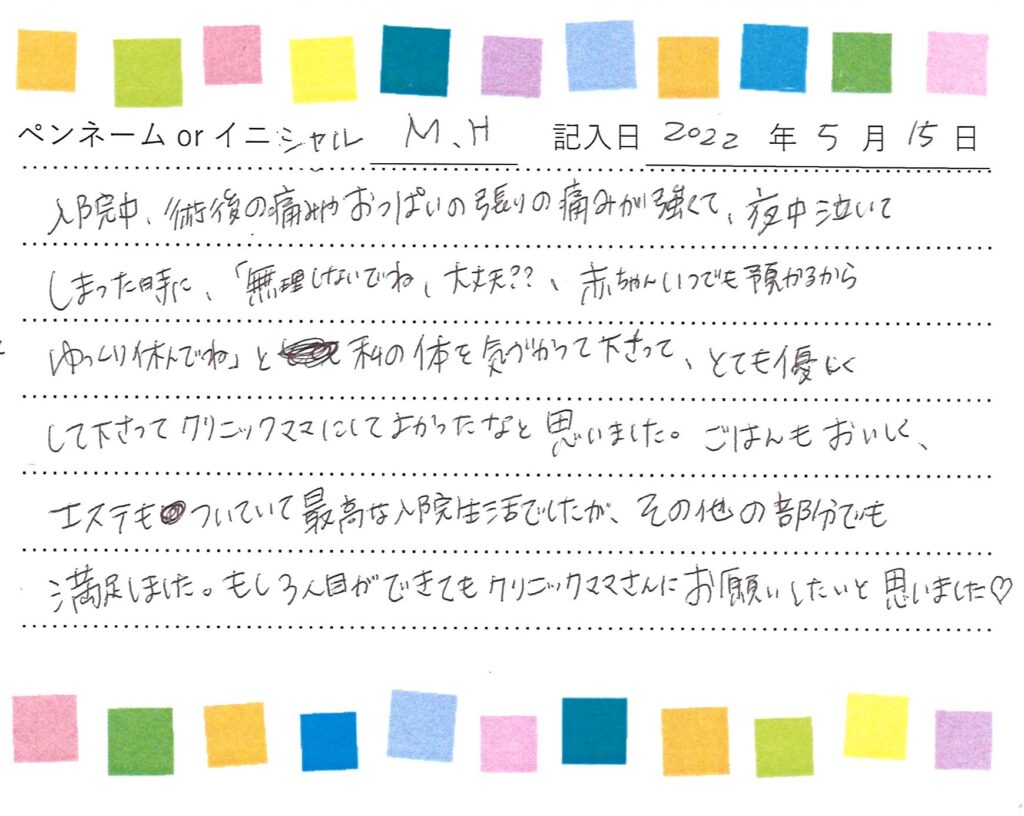 ペンネーム or イニシャル M.H 記入日 2022 年 5 月 15 日
入院中、術後の痛みやおっぱいの張りの痛みが強くて、夜中泣いて
しまった時に、「無理しないでね、大丈夫??、赤ちゃんいつでも預かるから
ゆっくり休んでね」と 私の体を気づかって下さって、とても優しく
して下さってクリニックママにしてよかったなと思いました。ごはんもおいしく、
エステもついていて最高な入院生活でしたが、その他の部分でも
満足しました。もし3人目ができてもクリニックママさんにお願いしたいと思いました♡